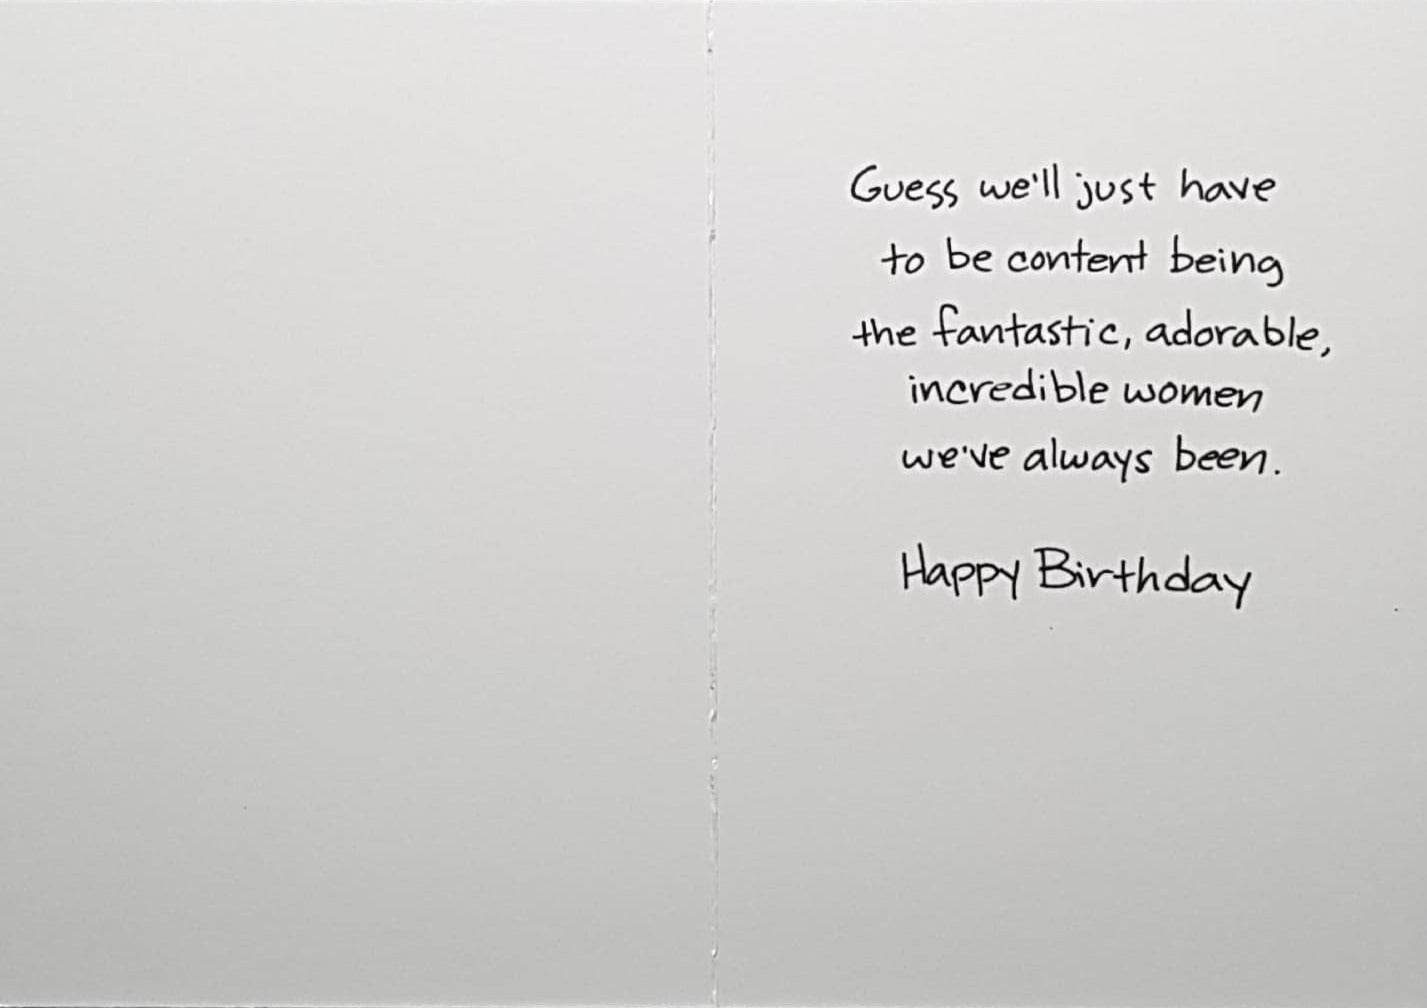 Guess we'll just have
to be content being
the fantastic, adorable,
incredible women
we've always been.
Happy Birthday